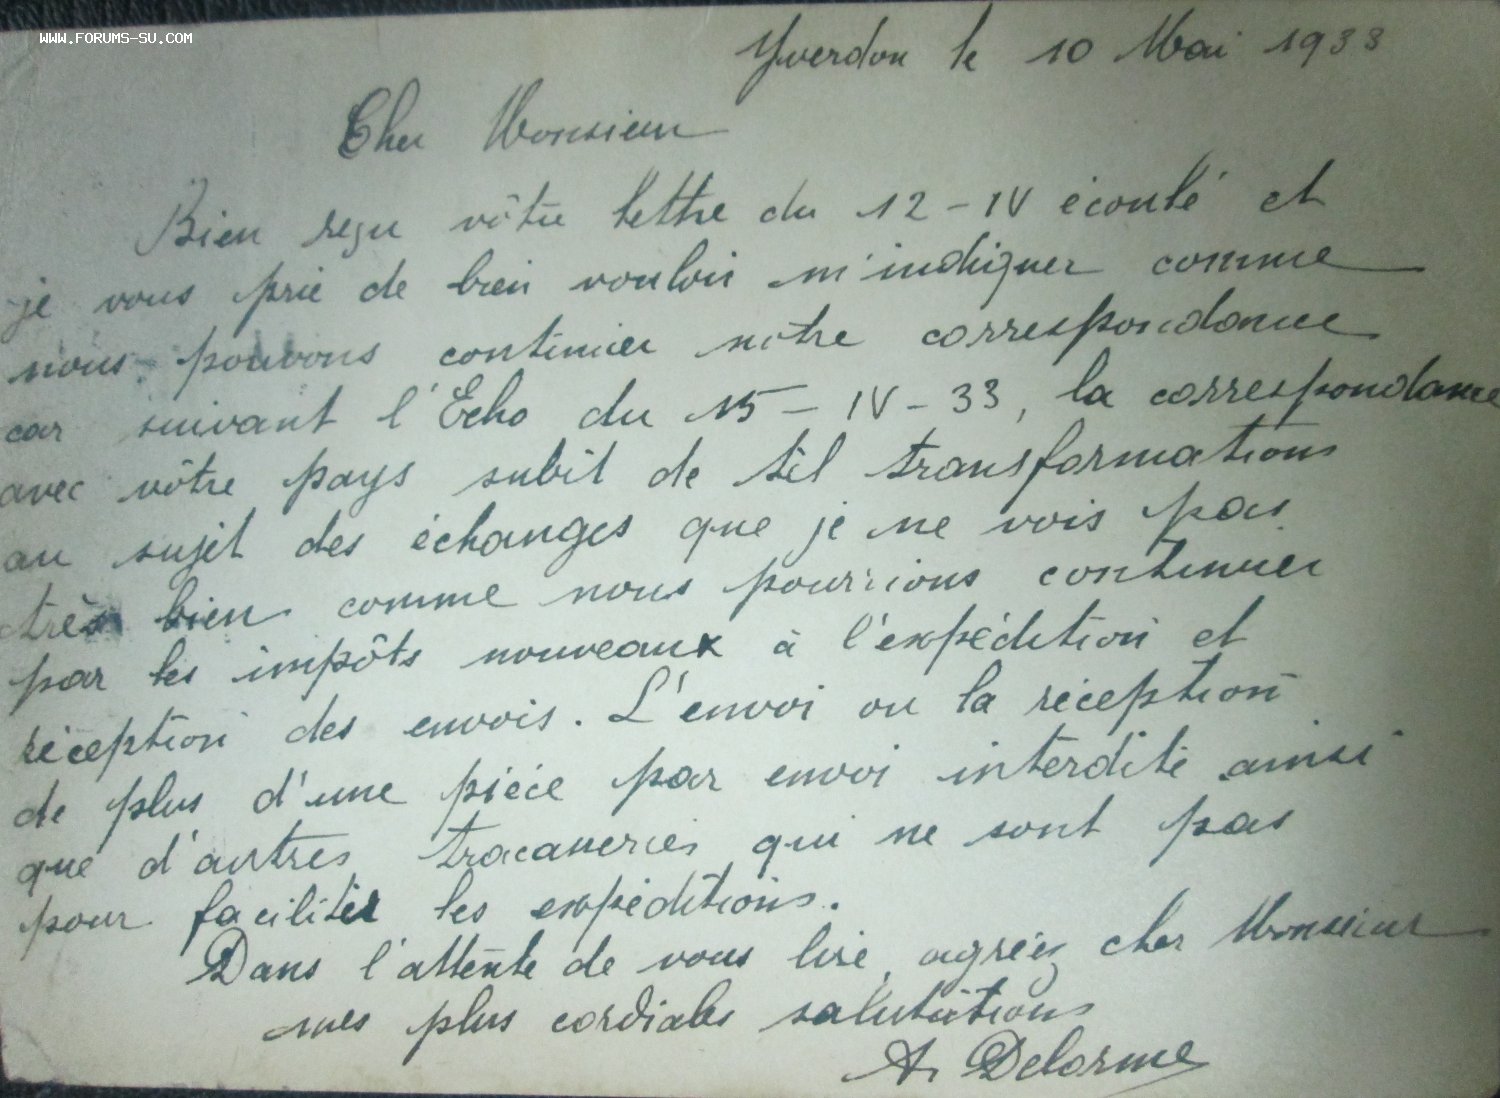 WWW.FORUMS-SU.COM
Yverdon le 10 Mai 1933
Cher Monsieur
Bien reçu vôtre lettre du 12-IV écoulé et
je vous prie de bien vouloir m'indiquer comme
nous pouvons continuer nôtre correspondance
car suivant l'Echo du 15-IV-33, la correspondance
avec vôtre pays subit de tèl transformations
au sujet des échanges que je ne vois pas
très bien comme nous pourrions continuer
par les impôts nouveaux à l'expédition et
réception des envois. L'envoi ou la réception
de plus d'une pièce par envoi interdite ainsi
que d'autres tracaneries qui ne sont pas
pour faciliter les expéditions.
Dans l'attente de vous lire, agréez cher Monsieur
mes plus cordiales salutations
A. Delorme